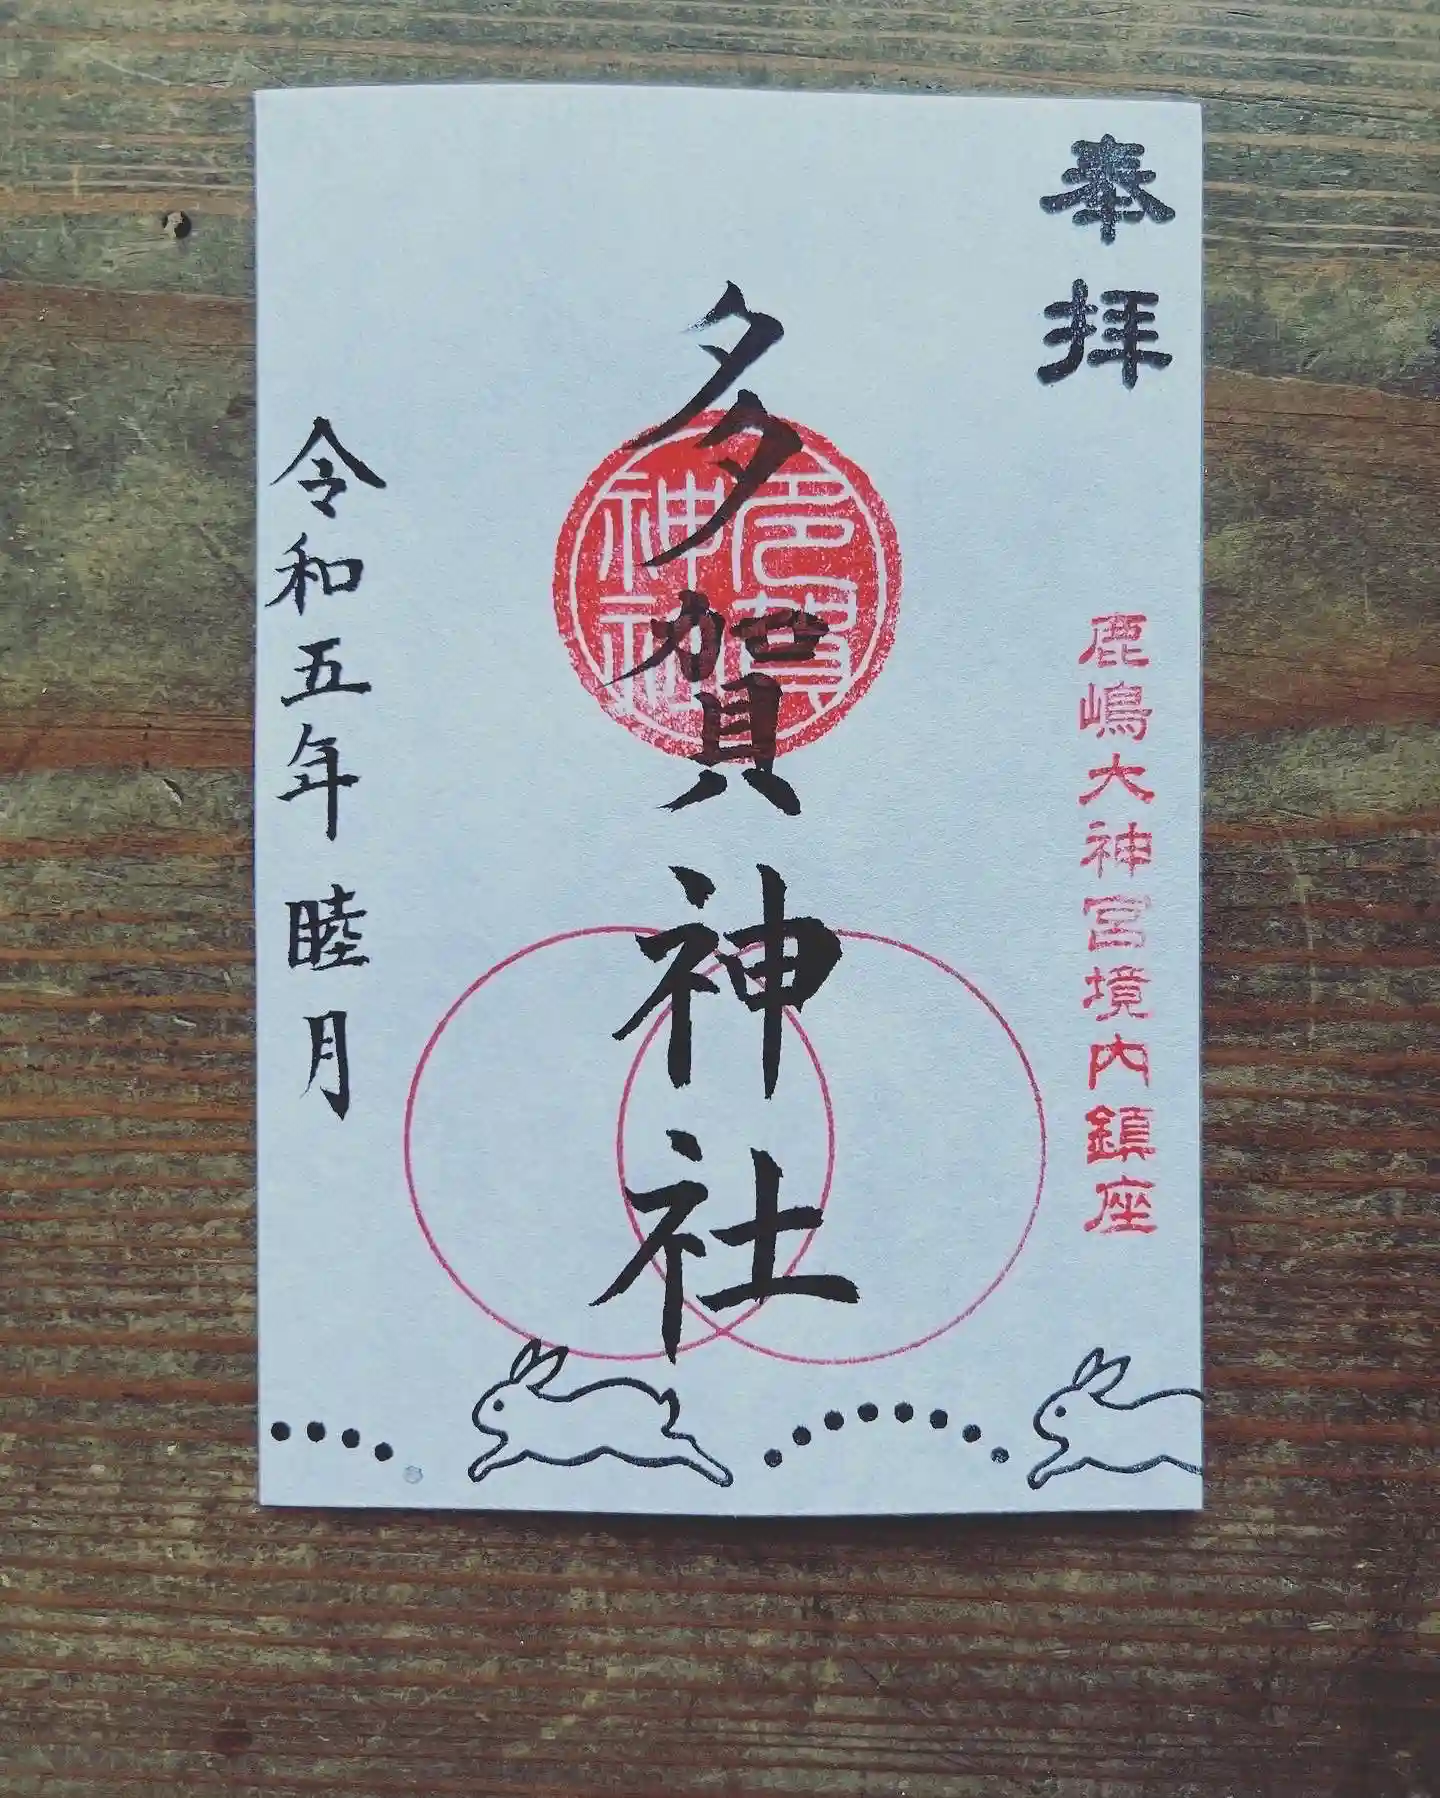 奉拝
鹿嶋大神宮境内鎮座
多賀神社
多賀
神社
令和五年 睦月